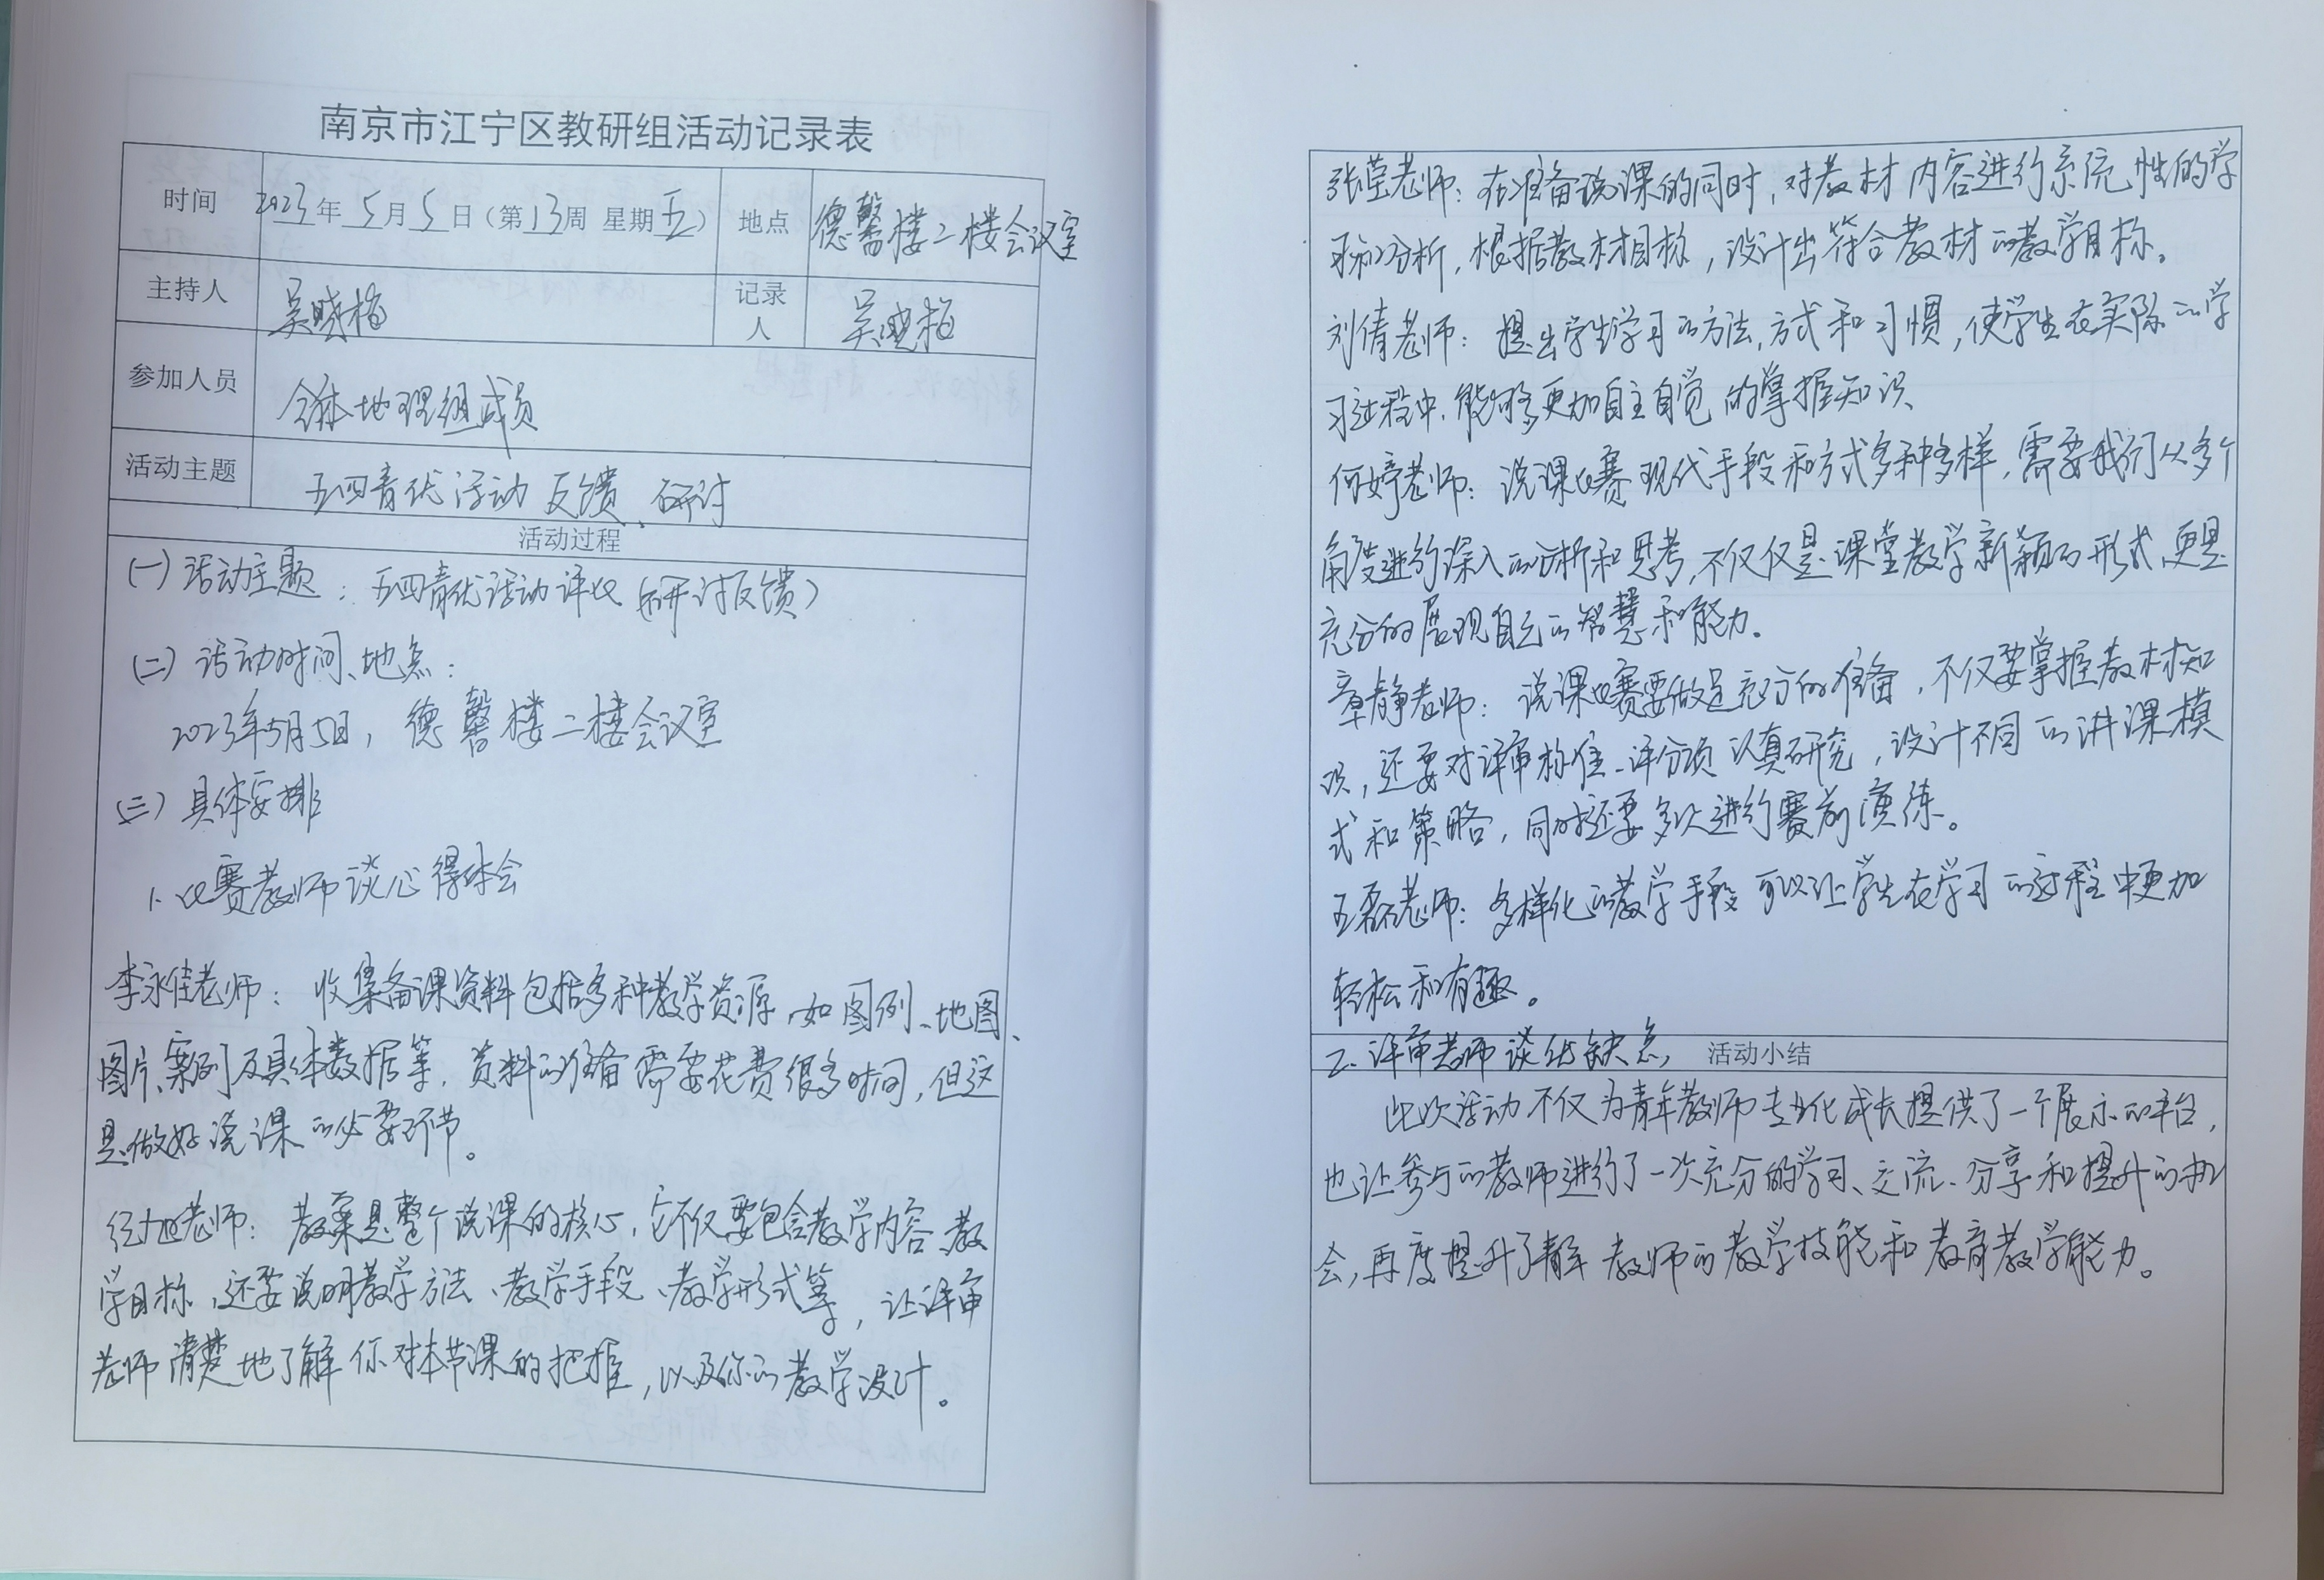 南京市江宁区教研组活动记录表
时间 2023年5月5日（第13周 星期五） 地点 德馨楼二楼会议室
主持人 吴晓梅 记录人 吴晓梅
参加人员 全体地理组成员
活动主题 五四青优活动反馈、研讨
活动过程
(一) 活动主题：五四青优活动评比（研讨反馈）
(二) 活动时间、地点：
2023年5月5日，德馨楼二楼会议室
(三) 具体安排
1. 比赛教师谈心得体会
李永佳老师：收集备课资料包括多种教学资源，如图例、地图、
图片、案例及具体数据等，资料的准备需要花费很多时间，但这
是做好说课的必要环节。
老师：教案是整个说课的核心，它不仅要包含教学内容、教
学目标，还要说明教学方法、教学手段、教学形式等，让评审
老师清楚地了解你对本节课的把握，以及你的教学设计。
张莹老师：在准备说课的同时，对教材内容进行系统性的学
习和分析，根据教材目标，设计出符合教材的教学目标。
刘倩老师：提出学生学习的方法，方式和习惯，使学生在实际的学
习过程中，能够更加自主自觉的掌握知识。
何婷老师：说课比赛现代手段和方式多种多样，需要我们从多个
角度进行深入的分析和思考，不仅仅是课堂教学新颖的形式，更是
充分的展现自己的智慧和能力。
章静老师：说课比赛要做足充分的准备，不仅要掌握教材知
识，还要对评审标准、评分项认真研究，设计不同的讲课模
式和策略，同时还要多次进行赛前演练。
王磊老师：多样化的教学手段可以让学生在学习的过程中更加
轻松和有趣。
2. 评审老师谈优缺点
活动小结
此次活动不仅为青年教师专业化成长提供了一个展示的平台，
也让参与的教师进行了一次充分的学习、交流、分享和提升的机
会，再度提升了青年教师的教学技能和教育教学能力。